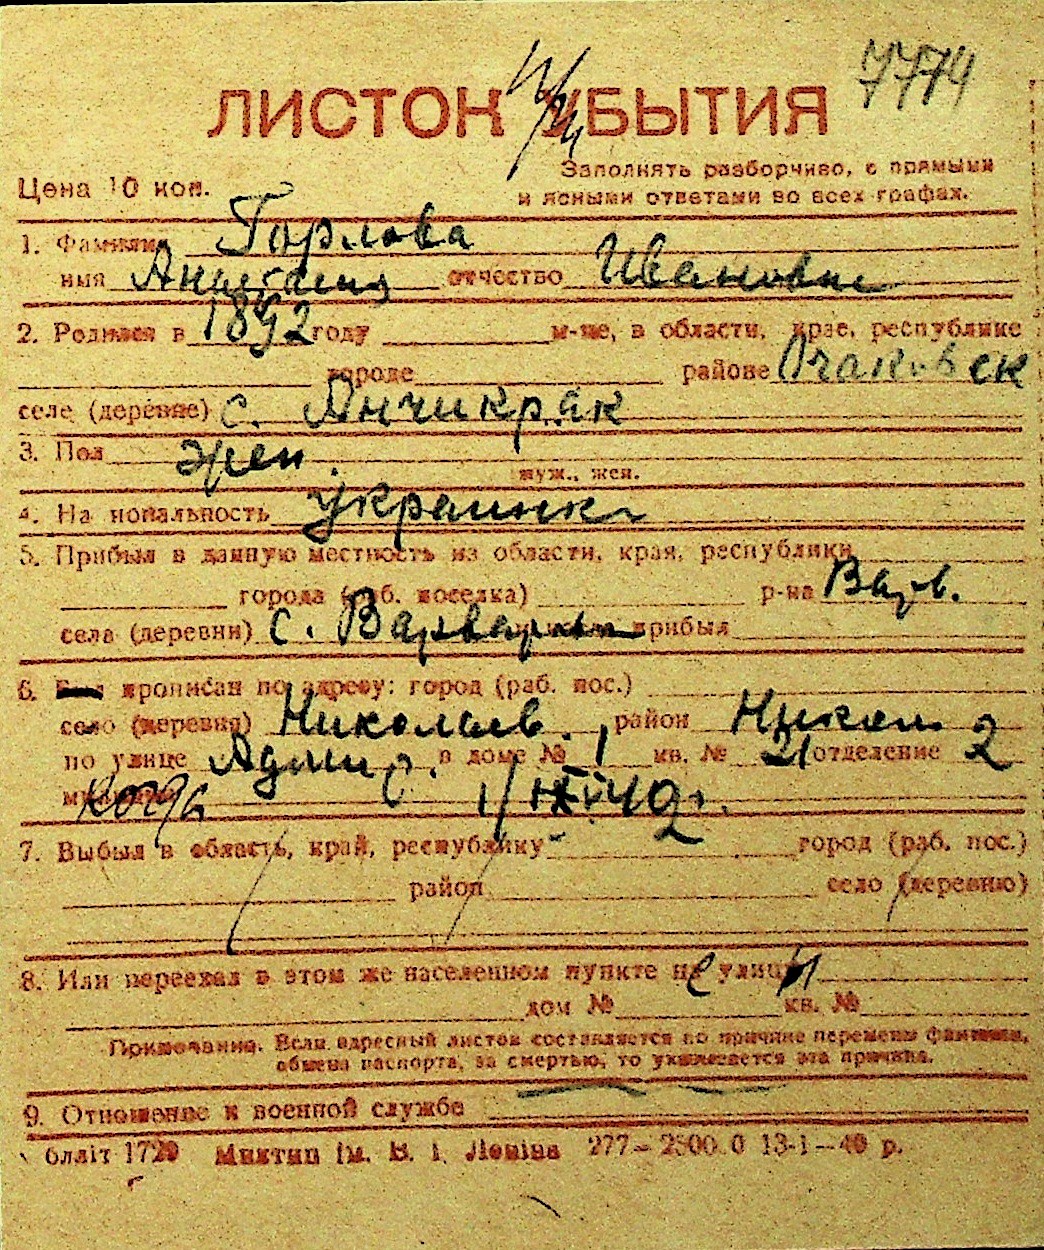 7774
ЛИСТОК УБЫТИЯ
Цена 10 коп.
Заполнять разборчиво, с прямыми
и ясными ответами во всех графах.
1. Фамилия Горлова
имя Анастасия отчество Ивановна
2. Родился в 1892 году м-це, в области, крае, республике
городе районе Очаковск
селе (деревне) с. Анчикрак
3. Пол жен.
муж., жен.
4. Национальность украинка
5. Прибыл в данную местность из области, края, республики
города (раб. поселка) р-на Варв.
села (деревни) с. Варваровка прибыл
6. Был прописан по адресу: город (раб. пос.)
село (деревня) Николаев. район Никол
по улице Адмир. в доме № 1 кв. № 21 отделение 2
милиции когда
7. Выбыл в область, край, республику город (раб. пос.)
район село (деревню)
8. Или переехал в этом же населенном пункте на улицу
дом № кв. №
Примечание. Если адресный листок составляется по причине перемены фамилии,
обмена паспорта, за смертью, то указывается эта причина.
9. Отношение к военной службе
бліт 1720 Миктип ім. В. І. Леніна 277—2500.0 13-1—40 р.